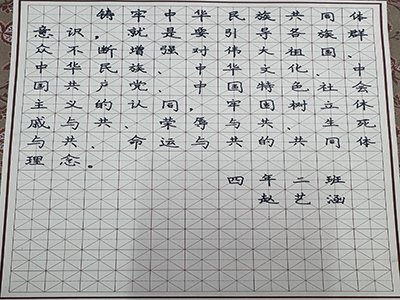 铸牢中华民族共同体
意识,就是要引导各族群
众不断增强对伟大祖国、
中华民族、中华文化、中
国共产党、中国特色社会
主义的认同,牢固树立休
戚与共、荣辱与共、生死
与共、命运与共的共同体
理念.
四年二班
赵艺涵